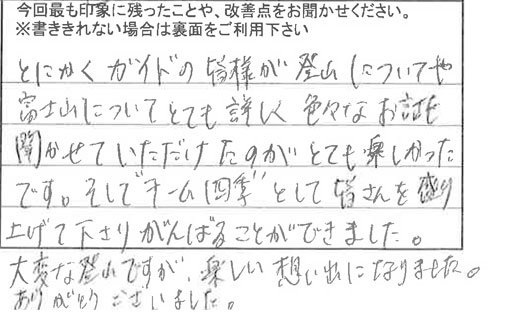 今回最も印象に残ったことや、改善点をお聞かせください。
※書ききれない場合は裏面をご利用下さい
とにかくガイドの皆様が登山についてや
富士山についてとても詳しく色々なお話を
聞かせていただけたのがとても楽しかった
です。そして"チーム四季"として皆さんを盛り
上げて下さりがんばることができました。
大変な登山ですが、楽しい想い出になりました。
ありがとうございました。